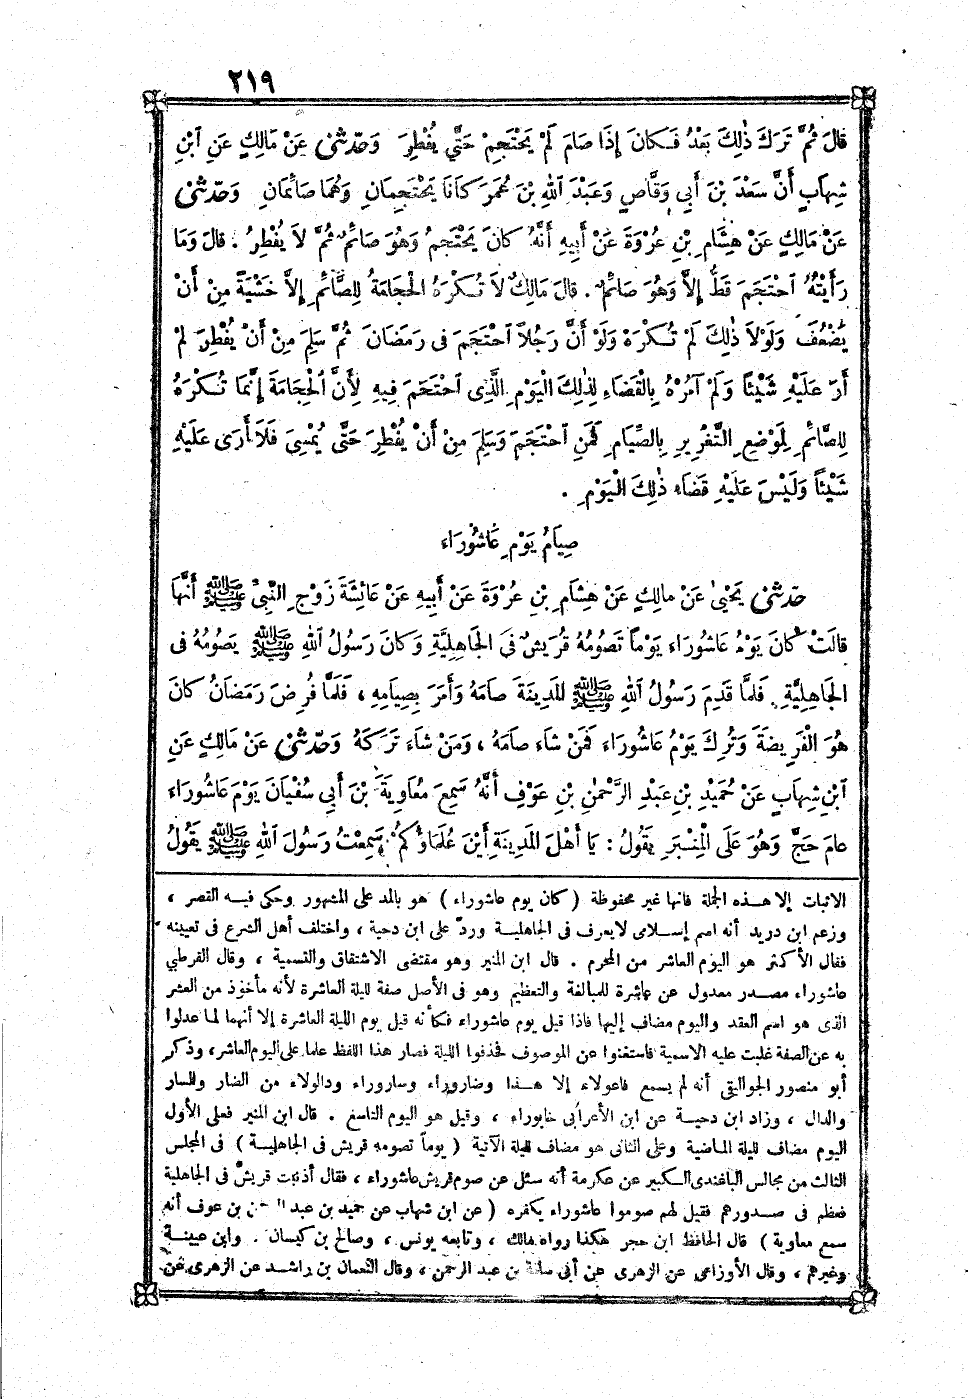 ٢١٩
قَالَ ثُمَّ تَرَكَ ذٰلِكَ بَعْدُ فَكَانَ إِذَا صَامَ لَمْ يَحْتَجِمْ حَتَّى يُفْطِرَ وَحَدَّثَنِى عَنْ مَالِكٍ عَنِ ابْنِ
شِهَابٍ أَنَّ سَعْدَ بْنَ أَبِي وَقَّاصٍ وَعَبْدَ اللهِ بْنَ عُمَرَ كَانَا يَحْتَجِمَانِ وَهُمَا صَائِمَانِ وَحَدَّثَنِى
عَنْ مَالِكٍ عَنْ هِشَامِ بْنِ عُرْوَةَ عَنْ أَبِيهِ أَنَّهُ كَانَ يَحْتَجِمُ وَهُوَ صَائِمٌ ثُمَّ لاَ يُفْطِرُ . قَالَ وَمَا
رَأَيْتُهُ احْتَجَمَ قَطُّ إِلاَّ وَهُوَ صَائِمٌ . قَالَ مَالِكٌ لاَ تُكْرَهُ الْحِجَامَةُ لِلصَّائِمِ إِلاَّ خَشْيَةً مِنْ أَنْ
يَضْعُفَ وَلَوْلاَ ذٰلِكَ لَمْ تُكْرَهْ وَلَوْ أَنَّ رَجُلاً احْتَجَمَ فِى رَمَضَانَ ثُمَّ سَلِمَ مِنْ أَنْ يُفْطِرَ لَمْ
أَرَ عَلَيْهِ شَيْئًا وَلَمْ آمُرْهُ بِالْقَضَاءِ لِذٰلِكَ الْيَوْمِ الَّذِى احْتَجَمَ فِيهِ لِأَنَّ الْحِجَامَةَ إِنَّمَا تُكْرَهُ
لِلصَّائِمِ لِمَوْضِعِ التَّغْرِيرِ بِالصِّيَامِ فَمَنِ احْتَجَمَ وَسَلِمَ مِنْ أَنْ يُفْطِرَ حَتَّى يُمْسِىَ فَلاَ أَرَى عَلَيْهِ
شَيْئًا وَلَيْسَ عَلَيْهِ قَضَاءُ ذٰلِكَ الْيَوْمِ .
صِيَامُ يَوْمِ عَاشُورَاءَ
حَدَّثَنِى يَحْيَى عَنْ مَالِكٍ عَنْ هِشَامِ بْنِ عُرْوَةَ عَنْ أَبِيهِ عَنْ عَائِشَةَ زَوْجِ النَّبِىِّ ﷺ أَنَّهَا
قَالَتْ كَانَ يَوْمُ عَاشُورَاءَ يَوْماً تَصُومُهُ قُرَيْشٌ فِى الْجَاهِلِيَّةِ وَكَانَ رَسُولُ اللهِ ﷺ يَصُومُهُ فِى
الْجَاهِلِيَّةِ. فَلَمَّا قَدِمَ رَسُولُ اللهِ ﷺ الْمَدِينَةَ صَامَهُ وَأَمَرَ بِصِيَامِهِ ، فَلَمَّا فُرِضَ رَمَضَانُ كَانَ
هُوَ الْفَرِيضَةَ وَتُرِكَ يَوْمُ عَاشُورَاءَ فَمَنْ شَاءَ صَامَهُ ، وَمَنْ شَاءَ تَرَكَهُ وَحَدَّثَنِى عَنْ مَالِكٍ عَنِ
ابْنِ شِهَابٍ عَنْ حُمَيْدِ بْنِ عَبْدِ الرَّحْمٰنِ بْنِ عَوْفٍ أَنَّهُ سَمِعَ مُعَاوِيَةَ بْنَ أَبِى سُفْيَانَ يَوْمَ عَاشُورَاءَ
عَامَ حَجَّ وَهُوَ عَلَى الْمِنْبَرِ يَقُولُ : يَا أَهْلَ الْمَدِينَةِ أَيْنَ عُلَمَاؤُكُمْ سَمِعْتُ رَسُولَ اللهِ ﷺ يَقُولُ
الاثبات إلا هذه الجملة فانها غير محفوظة ( كان يوم عاشوراء ) هو بالمد على المشهور وحكى فيه القصر ،
وزعم ابن دريد أنه اسم إسلامى لا يعرف فى الجاهلية وردّ على ابن دحية ، واختلف أهل الشرع فى تعيينه
فقال الأكثر هو اليوم العاشر من المحرم . قال ابن المنير وهو مقتضى الاشتقاق والتسمية ، وقال القرطبي
عاشوراء مصدر معدول عن عاشرة للمبالغة والتعظيم وهو فى الأصل صفة لليلة العاشرة لأنه مأخوذ من العشر
الذى هو اسم العقد واليوم مضاف إليها فاذا قيل يوم عاشوراء فكأنه قيل يوم الليلة العاشرة إلا أنهما لما عدلوا
به عن الصفة غلبت عليه الاسمية فاستغنوا عن الموصوف فحذفوا الليلة فصار هذا اللفظ علما على اليوم العاشر، وذكر
أبو منصور الجواليقى أنه لم يسمع فاعولاء إلا هذا وضاروراء وساروراء ودالولاء من الضار والسار
والدال ، وزاد ابن دحية عن ابن الأعرابى خابوراء ، وقيل هو اليوم التاسع . قال ابن المنير فعلى الأول
اليوم مضاف لليلة الماضية وعلى الثانى هو مضاف لليلة الآتية ( يوماً تصومه قريش فى الجاهلية ) فى المجلس
الثالث من مجالس الباغندى الكبير عن عكرمة أنه سئل عن صوم قريش عاشوراء ، فقال أذنبت قريش فى الجاهلية
فعظم فى صدورهم فقيل لهم صوموا عاشوراء يكفره ( عن ابن شهاب عن حميد بن عبد بن عوف أنه
سمع معاوية ) قال الحافظ ابن حجر هكذا رواه مالك ، وتابعه يونس ، وصالح بن كيسان . وابن عيينة
وغيرهم ، وقال الأوزاعى عن الزهرى عن أبى سلمة بن عبد الرحمن ، وقال النعمان بن راشد عن الزهرى عن